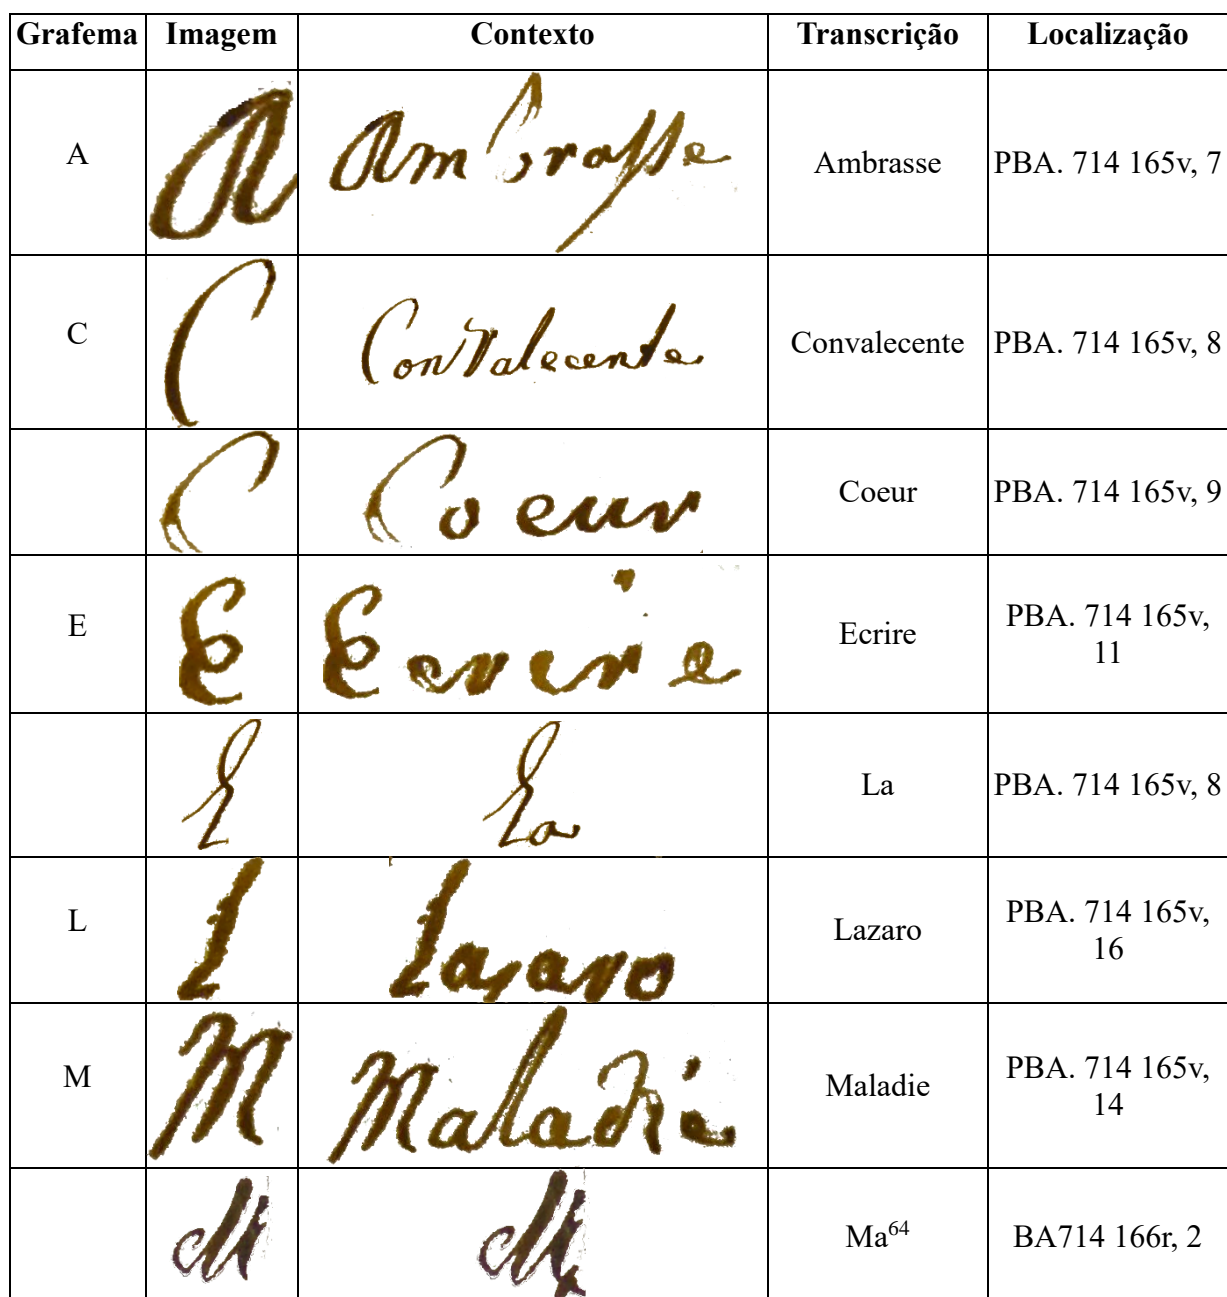 Grafema Imagem Contexto Transcrição Localização
A A Ambrasse Ambrasse PBA. 714 165v, 7
C C Convalecente Convalecente PBA. 714 165v, 8
C Coeur Coeur PBA. 714 165v, 9
E E Ecrire Ecrire PBA. 714 165v,
11
L La La PBA. 714 165v, 8
L L Lazaro Lazaro PBA. 714 165v,
16
M M Maladie Maladie PBA. 714 165v,
14
M Ma Ma64 BA714 166r, 2